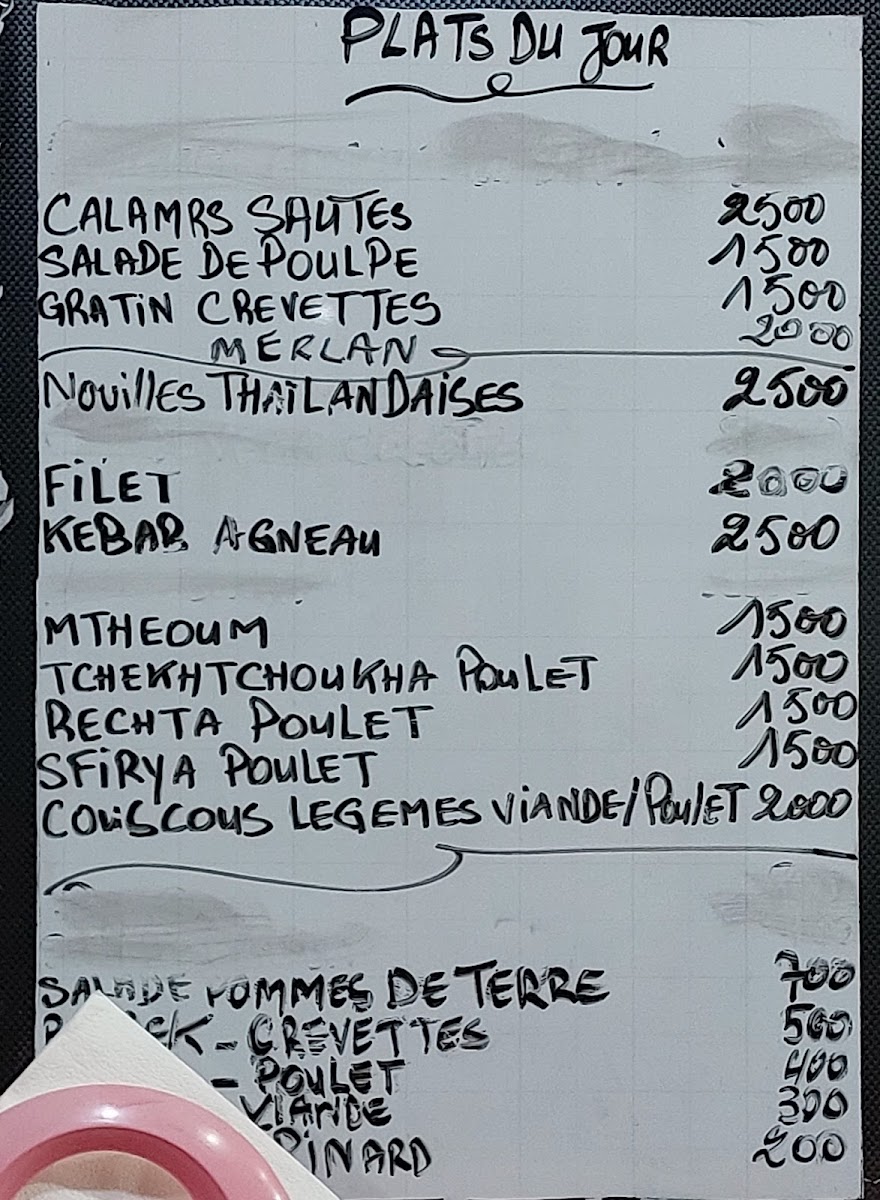 PLATS DU JOUR
CALAMRS SAUTES 2500
SALADE DE POULPE 1500
GRATIN CREVETTES 1500
MERLAN 2000
NOUILLES THAÏLANDAISES 2500
FILET 2000
KEBAB AGNEAU 2500
MTHEOUM 1500
TCHEKHTCHOUKHA POULET 1500
RECHTA POULET 1500
SFIRYA POULET 1500
COUSCOUS LEGEMES VIANDE/POULET 2000
SALADE POMMES DE TERRE 700
- CREVETTES 500
- POULET 400
VIANDE 300
200